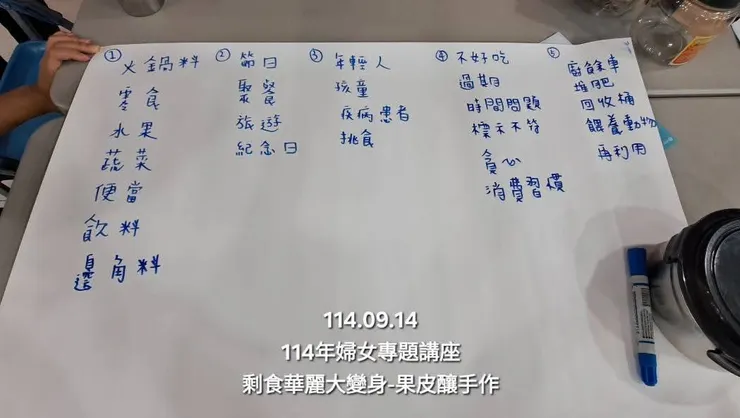 ①
火鍋料
零食
水果
蔬菜
便當
飲料
邊角料
②
節日
聚餐
旅遊
紀念日
③
年輕人
孩童
疾病患者
挑食
④
不好吃
過期
時間問題
標示不符
貪心
消費習慣
⑤
廚餘車
堆肥
回收桶
餵養動物
再利用
114.09.14
114年婦女專題講座
剩食華麗大變身-果皮釀手作